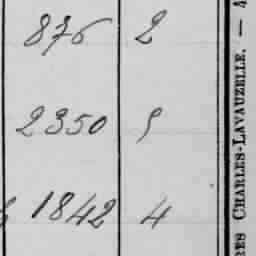 876 2
2350 5
1842 4
RES CHARLES-LAVAUZELLE. — 4